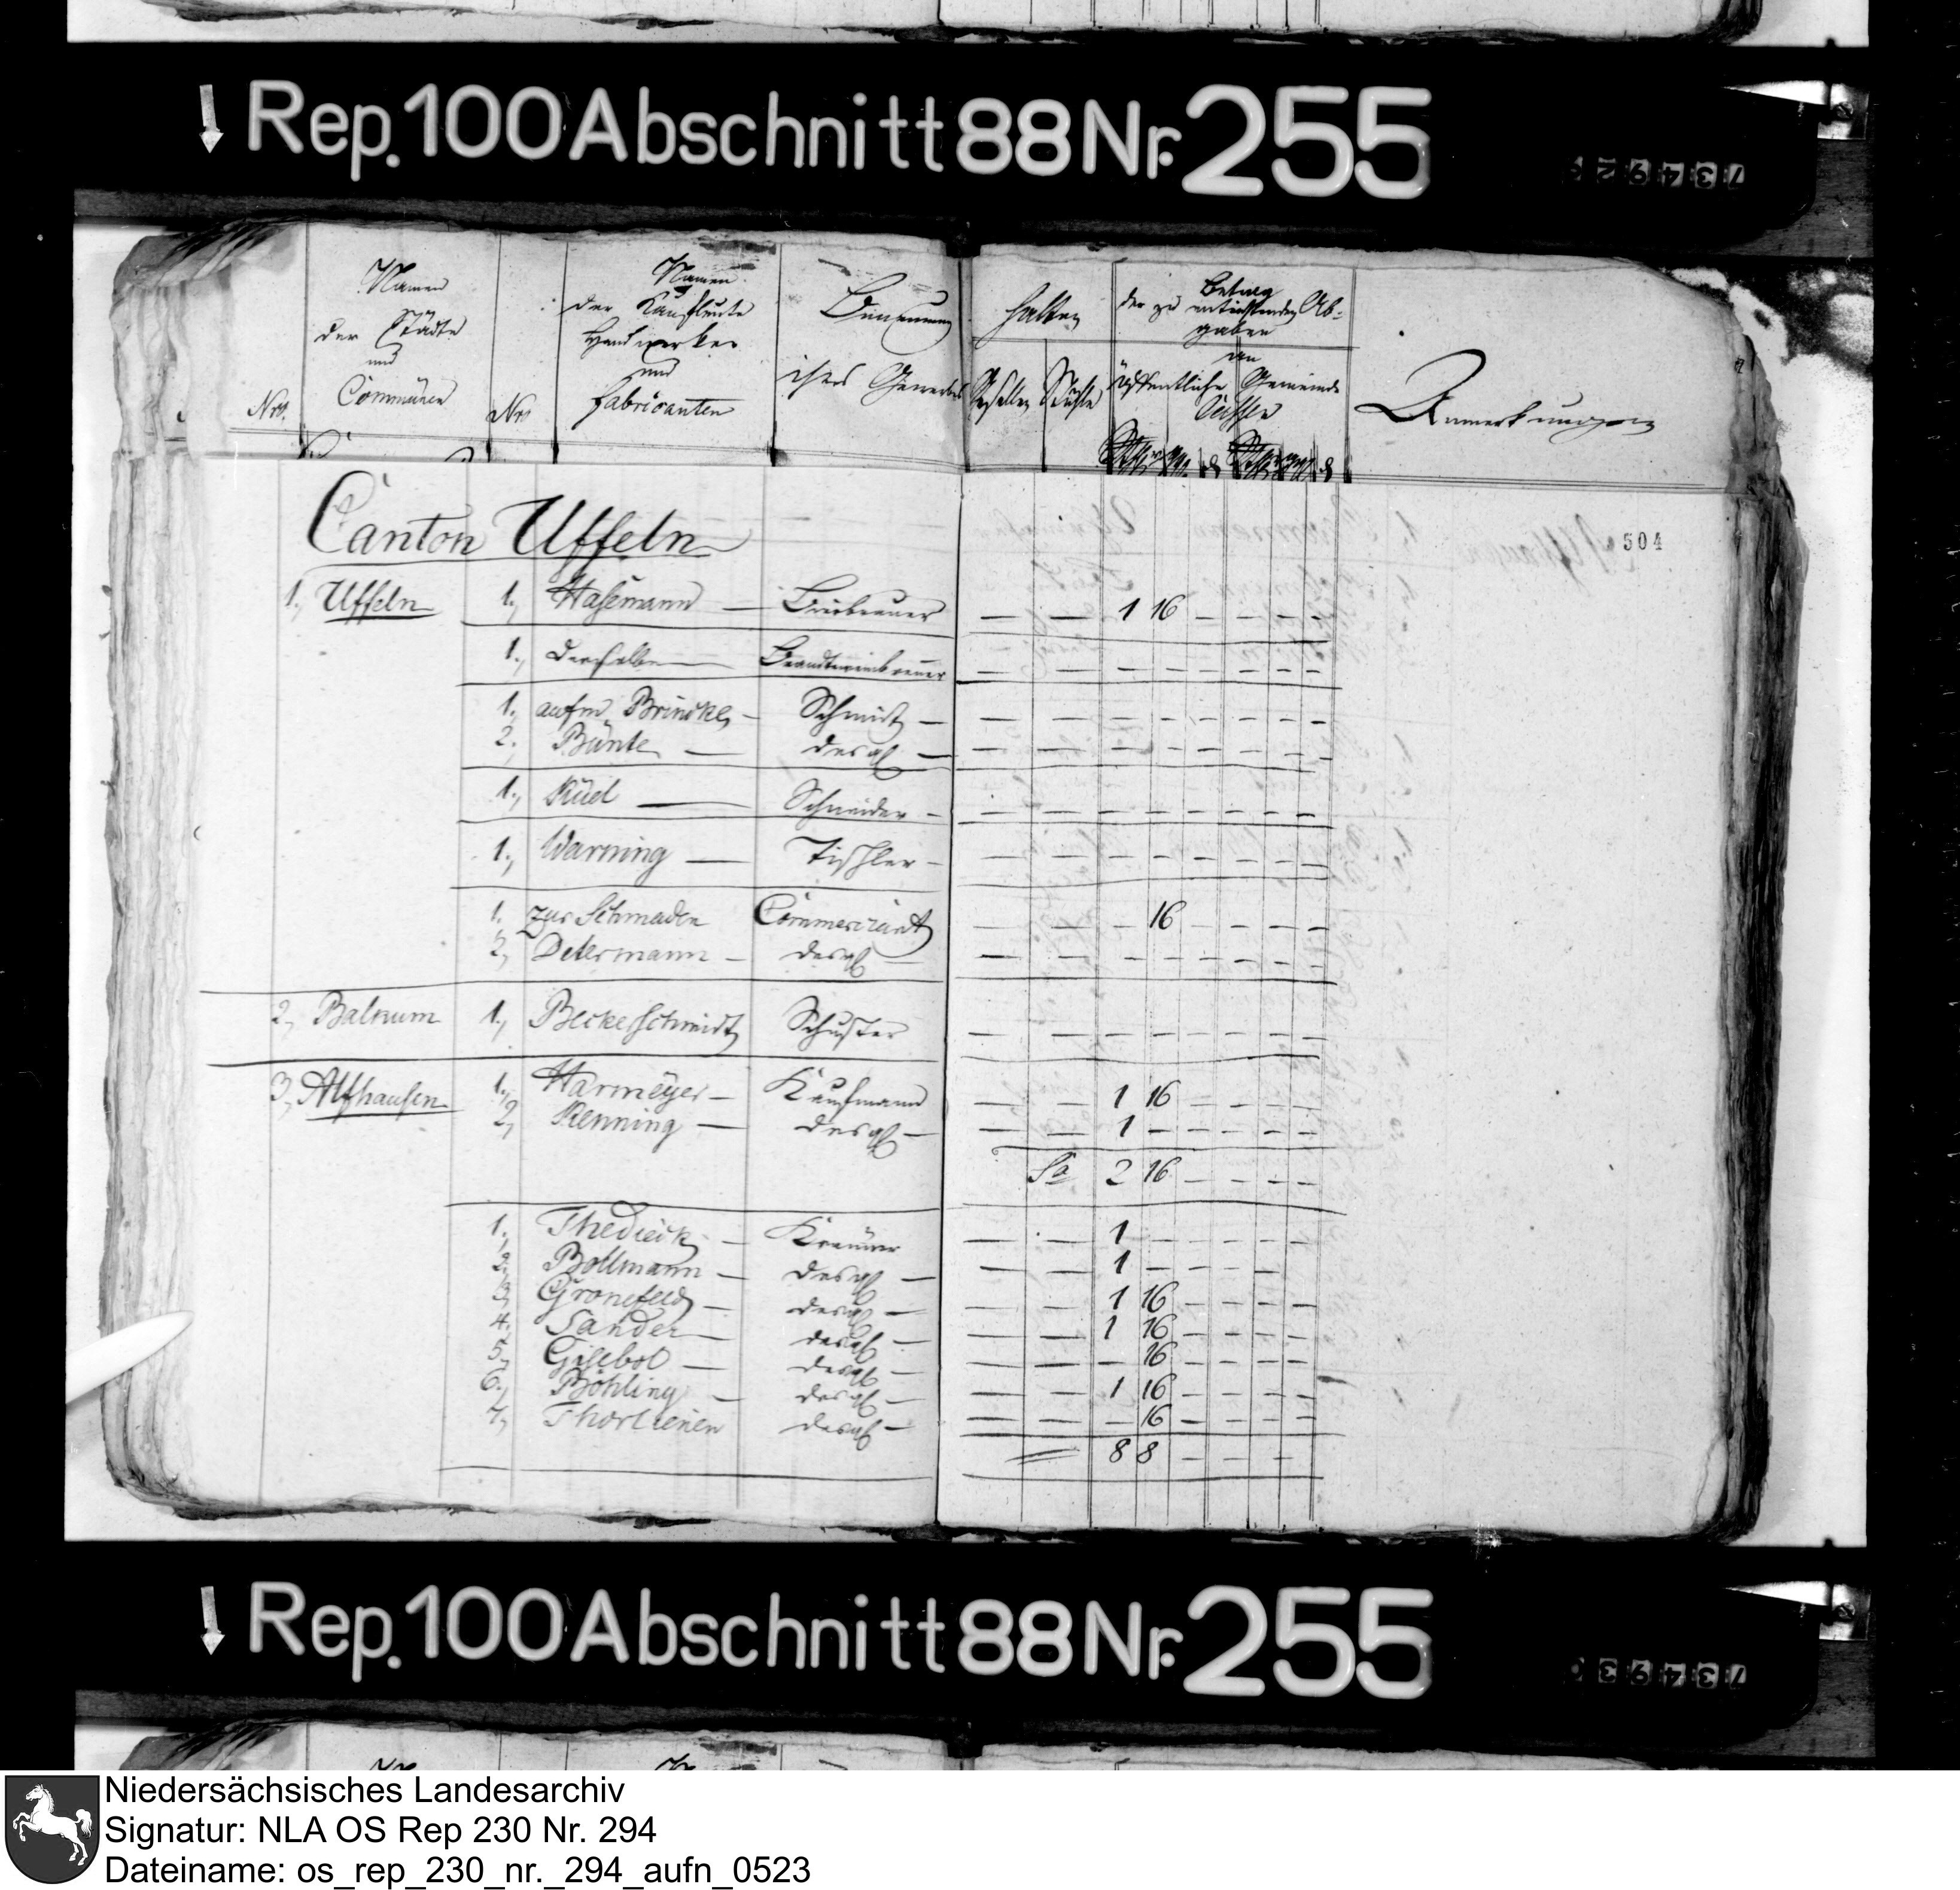 Rep. 100 Abschnitt 88 Nr. 255
734929
Nro.
Namen der Städte und Communen
Nro
Namen der Kaufleute Handwerker und Fabricanten
Benennung ihres Gewerbes
halten
Gesellen Stühle
Betrag der zu entrichtenden Abgaben
an
öffentliche Gemeinde
Casse
Anmerkungen
504
Canton Uffeln
1, Uffeln 1., Hasemann — Bierbrauer — — 1 16 — — — —
1., Derselbe — Brandteweinbrenner — — — — — — — —
1., aufm Brincke, — Schmidt — — — — — — — — —
2., Bünte — desgl — — — — — — — — —
1., Rüel — Schneider — — — — — — — — —
1., Warning — Tischler — — — — — — — — —
1. zur Schmaden Commerciant — — — 16 — — — —
2, Determann — desgl — — — — — — — — —
2, Balkum 1., Beckeschmidt Schuster — — — — — — — —
3, Alfhausen 1., Harmeyer — Kaufmann — — 1 16 — — — —
2, Renning — desgl — — — 1 — — — — —
Sa 2 16 — — — —
1., Thedieck — Krämer — — 1 — — — — —
2, Bollmann — desgl — — — 1 — — — —
3, Gronefeld — desgl — — — 1 16 — — — —
4. Sander — desgl — — — 1 16 — — — —
5, — desgl — — — — 16 — — — —
6., Böhling — desgl — — — 1 16 — — — —
7, desgl — — — — 16 — — — —
8 8 — — — —
Rep. 100 Abschnitt 88 Nr. 255
73493
Niedersächsisches Landesarchiv
Signatur: NLA OS Rep 230 Nr. 294
Dateiname: os_rep_230_nr._294_aufn_0523